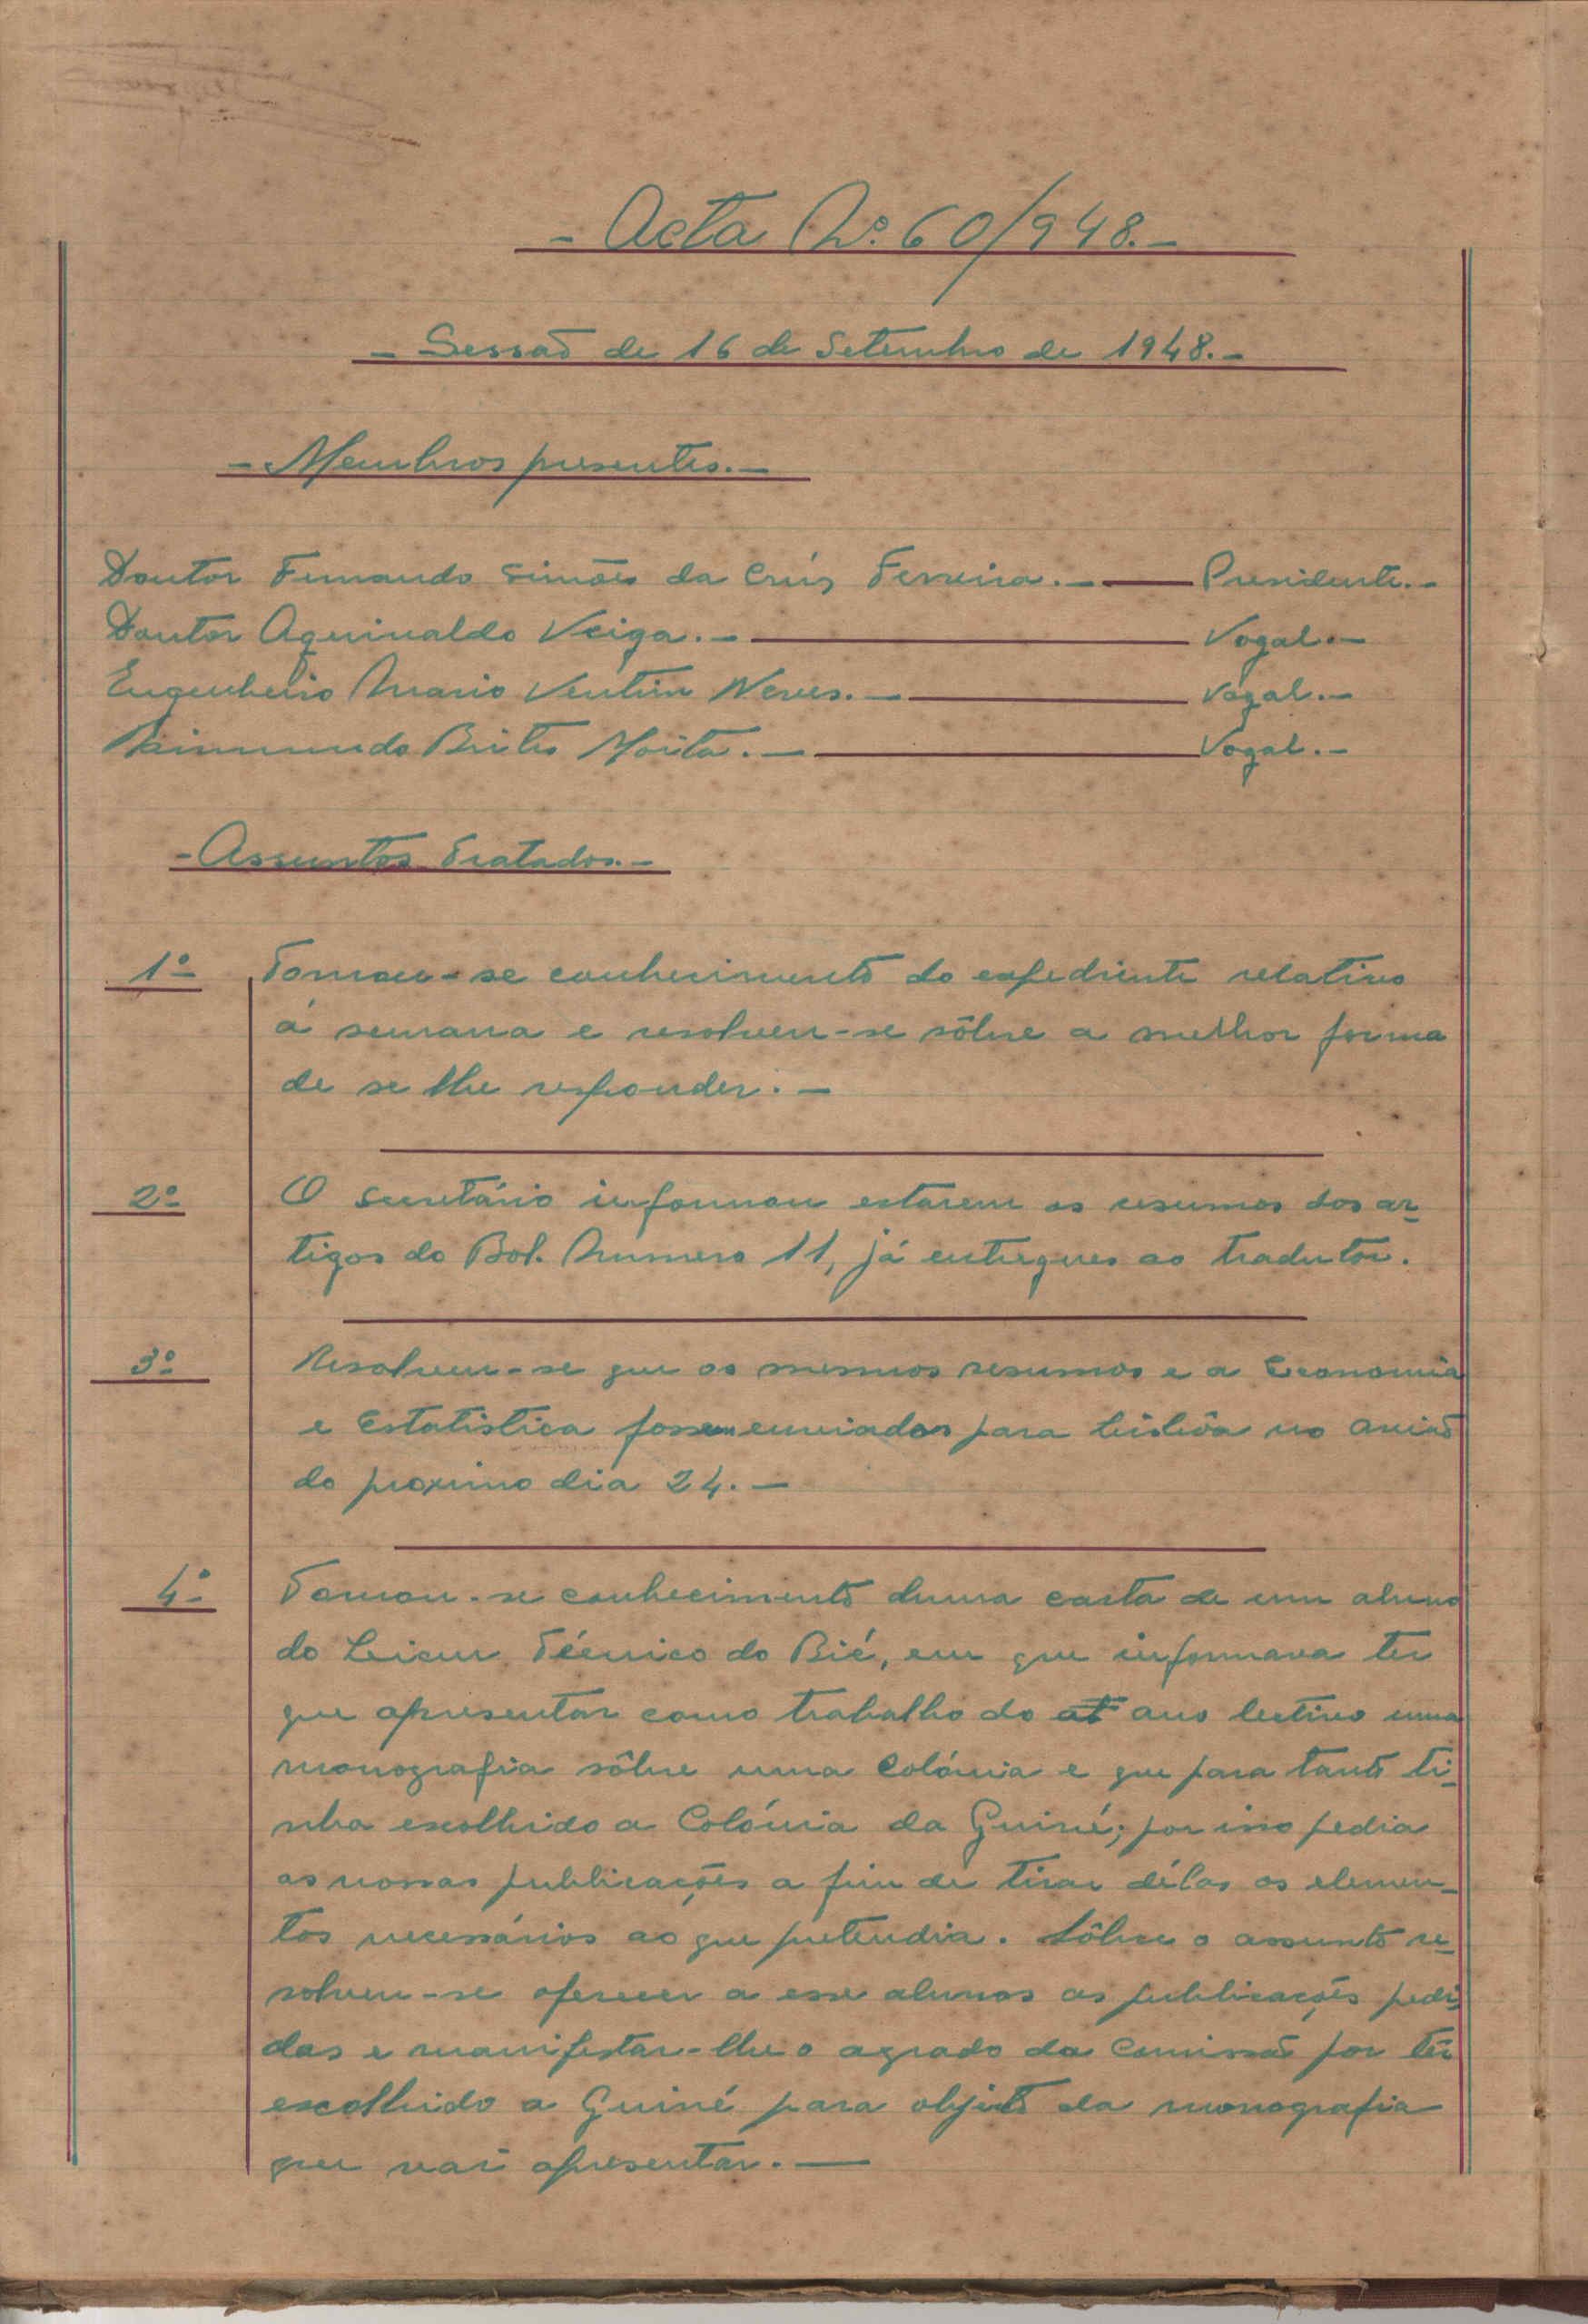 - Acta No. 60/948.-
- Sessão de 16 de Setembro de 1948.-
- Membros presentes.-
Doutor Fernando Simões da Crús Ferreira.- Presidente.-
Doutor Aquinaldo Veiga.- Vogal.-
Engenheiro Mario Ventim Neves.- Vogal.-
Raimundo Brites Moita.- Vogal.-
- Assuntos Tratados.-
1º Tomou-se conhecimento do expediente relativo
á semana e resolveu-se sôbre a melhor forma
de se lhe responder.-
2º O secretário informou estarem os resumos dos ar-
tigos do Bol. Numero 11, já entregues ao tradutor.
3º Resolveu-se que os mesmos resumos e a Economia
e Estatistica fossem enviados para Lisbôa no avião
do proximo dia 24.-
4º Tomou-se conhecimento duma carta de um aluno
do Liceu Técnico do Bié, em que informava ter
que apresentar como trabalho do at ano lectivo uma
monografia sôbre uma Colónia e que para tanto ti-
nha escolhido a Colónia da Guiné; por isso pedia
as nossas publicações a fim de tirar délas os elemen-
tos necessários ao que pretendia. Sôbre o assunto re-
solveu-se oferecer a esse alunos as publicações pedi-
das e manifestar-lhe o agrado da Comissão por têr
escolhido a Guiné para objeto da monografia
que vai apresentar.-